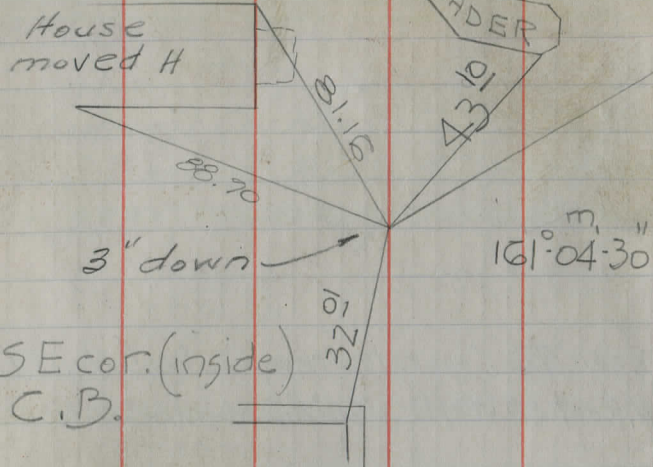 ADER
House
moved H
81.16
43.01
88.70
3" down
m
161°-04'-30"
32.01
SE cor. (inside)
C.B.